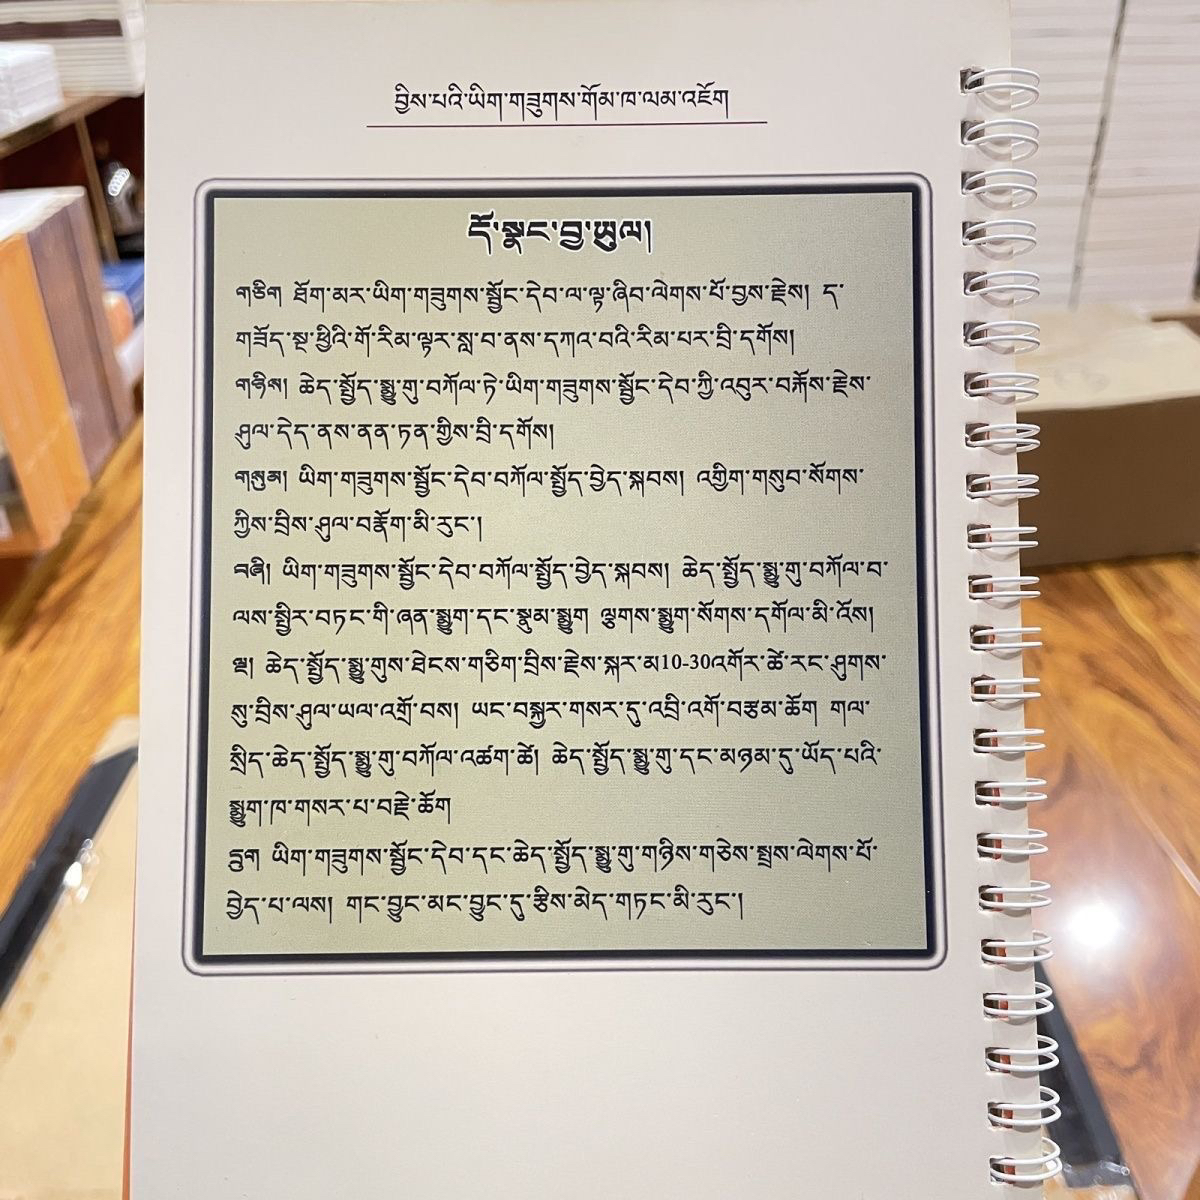 བྱིས་པའི་ཡིག་གཟུགས་གོམ་ཁ་ལམ་འཇོག
དོ་སྣང་བྱ་ཡུལ།
གཅིག ཐོག་མར་ཡིག་གཟུགས་སྦྱོང་དེབ་ལ་ལྟ་ཞིབ་ལེགས་པོ་བྱས་རྗེས། ད་
གཟོད་སྔ་ཕྱིའི་གོ་རིམ་ལྟར་སླ་བ་ནས་དཀའ་བའི་རིམ་པར་བྲི་དགོས།
གཉིས། ཆེད་སྤྱོད་སྨྱུ་གུ་བཀོལ་ཏེ་ཡིག་གཟུགས་སྦྱོང་དེབ་ཀྱི་འབུར་བརྐོས་རྗེས་
ཤུལ་དེད་ནས་ནན་ཏན་གྱིས་བྲི་དགོས།
གསུམ། ཡིག་གཟུགས་སྦྱོང་དེབ་བཀོལ་སྤྱོད་བྱེད་སྐབས། འགྱིག་གསུབ་སོགས་
ཀྱིས་བྲིས་ཤུལ་བརྣོག་མི་རུང་།
བཞི། ཡིག་གཟུགས་སྦྱོང་དེབ་བཀོལ་སྤྱོད་བྱེད་སྐབས། ཆེད་སྤྱོད་སྨྱུ་གུ་བཀོལ་བ་
ལས་སྤྱིར་བཏང་གི་ཞན་སྨྱུག་དང་སྣུམ་སྨྱུག ལྕགས་སྨྱུག་སོགས་དགོལ་མི་འོས།
ལྔ། ཆེད་སྤྱོད་སྨྱུ་གུས་ཐེངས་གཅིག་བྲིས་རྗེས་སྐར་མ10-30འགོར་ཚེ་རང་ཤུགས་
སུ་བྲིས་ཤུལ་ཡལ་འགྲོ་བས། ཡང་བསྐྱར་གསར་དུ་འབྲི་འགོ་བརྩམ་ཆོག གལ་
སྲིད་ཆེད་སྤྱོད་སྨྱུ་གུ་བཀོལ་འཚག་ཚེ། ཆེད་སྤྱོད་སྨྱུ་གུ་དང་མཉམ་དུ་ཡོད་པའི་
སྨྱུག་ཁ་གསར་པ་བརྗེ་ཆོག
དྲུག ཡིག་གཟུགས་སྦྱོང་དེབ་དང་ཆེད་སྤྱོད་སྨྱུ་གུ་གཉིས་གཅེས་སྤྲས་ལེགས་པོ་
བྱེད་པ་ལས། གང་བྱུང་མང་བྱུང་དུ་རྩིས་མེད་གཏང་མི་རུང་།